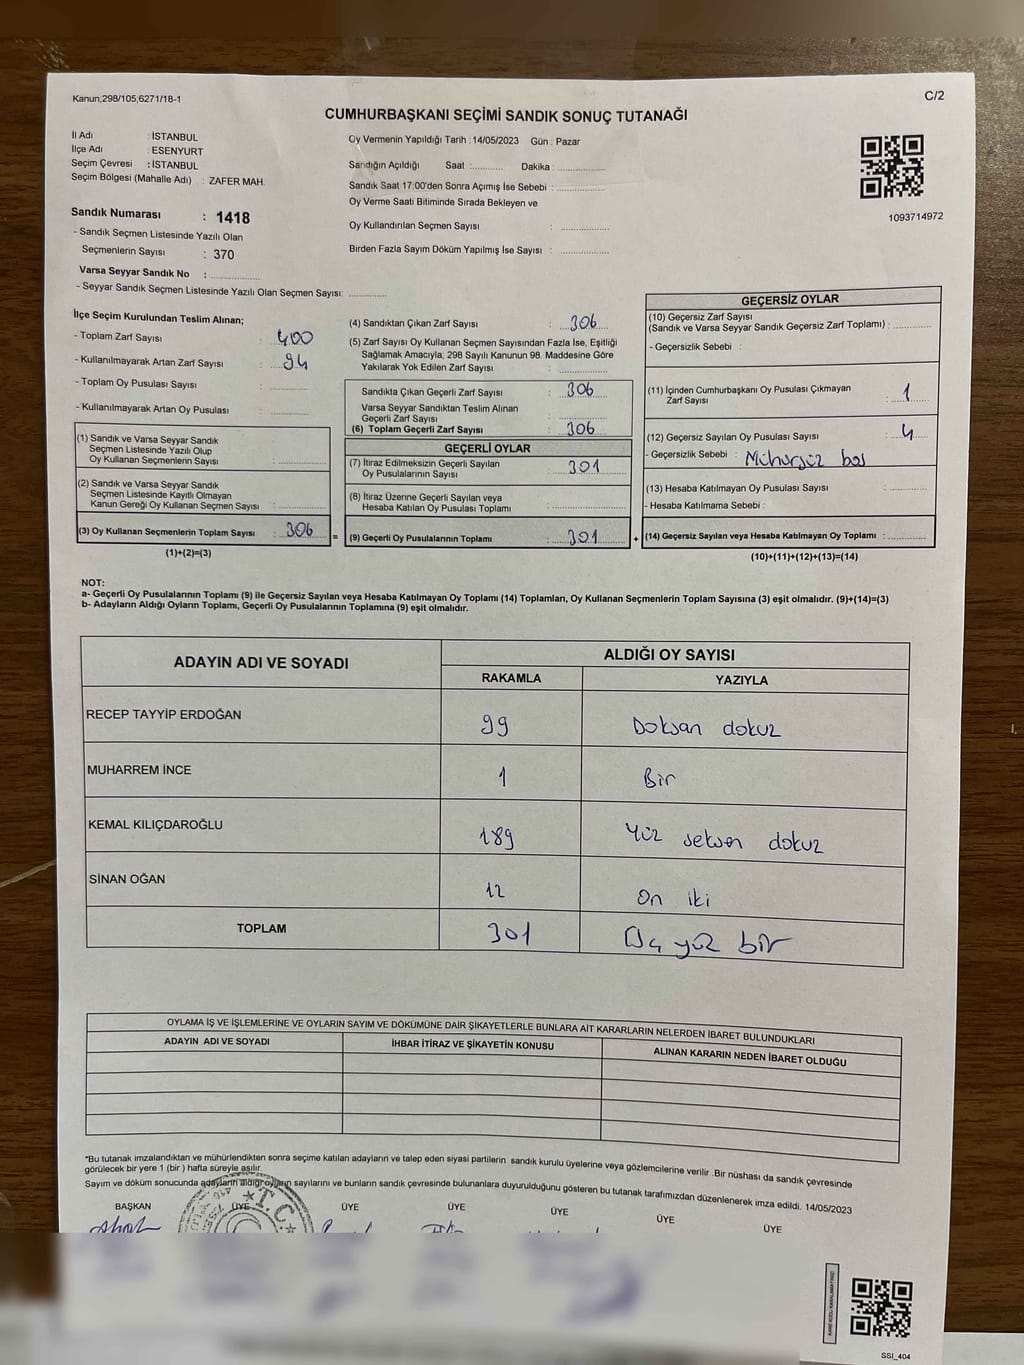 Kanun;298/105;6271/18-1
C/2
CUMHURBAŞKANI SEÇİMİ SANDIK SONUÇ TUTANAĞI
İl Adı : İSTANBUL
İlçe Adı : ESENYURT
Seçim Çevresi : İSTANBUL
Seçim Bölgesi (Mahalle Adı) : ZAFER MAH.
Oy Vermenin Yapıldığı Tarih : 14/05/2023 Gün : Pazar
Sandığın Açıldığı Saat :........... Dakika :................
Sandık Saat 17:00'den Sonra Açımış İse Sebebi :................
Oy Verme Saati Bitiminde Sırada Bekleyen ve
Oy Kullandırılan Seçmen Sayısı : ................
Birden Fazla Sayım Döküm Yapılmış İse Sayısı : ................
1093714972
Sandık Numarası : 1418
- Sandık Seçmen Listesinde Yazılı Olan
Seçmenlerin Sayısı : 370
Varsa Seyyar Sandık No : ................
- Seyyar Sandık Seçmen Listesinde Yazılı Olan Seçmen Sayısı: ............
İlçe Seçim Kurulundan Teslim Alınan;
- Toplam Zarf Sayısı : 400
- Kullanılmayarak Artan Zarf Sayısı : 94
- Toplam Oy Pusulası Sayısı : ............
- Kullanılmayarak Artan Oy Pusulası : ............
(1) Sandık ve Varsa Seyyar Sandık
Seçmen Listesinde Yazılı Olup
Oy Kullanan Seçmenlerin Sayısı : ............
(2) Sandık ve Varsa Seyyar Sandık
Seçmen Listesinde Kayıtlı Olmayan
Kanun Gereği Oy Kullanan Seçmen Sayısı : ............
(3) Oy Kullanan Seçmenlerin Toplam Sayısı : 306
(1)+(2)=(3)
(4) Sandıktan Çıkan Zarf Sayısı : 306
(5) Zarf Sayısı Oy Kullanan Seçmen Sayısından Fazla İse, Eşitliği
Sağlamak Amacıyla; 298 Sayılı Kanunun 98. Maddesine Göre
Yakılarak Yok Edilen Zarf Sayısı : ............
Sandıkta Çıkan Geçerli Zarf Sayısı : 306
Varsa Seyyar Sandıktan Teslim Alınan
Geçerli Zarf Sayısı : ............
(6) Toplam Geçerli Zarf Sayısı : 306
GEÇERLİ OYLAR
(7) İtiraz Edilmeksizin Geçerli Sayılan
Oy Pusulalarının Sayısı : 301
(8) İtiraz Üzerine Geçerli Sayılan veya
Hesaba Katılan Oy Pusulası Toplamı : ............
= (9) Geçerli Oy Pusulalarının Toplamı : 301
GEÇERSİZ OYLAR
(10) Geçersiz Zarf Sayısı
(Sandık ve Varsa Seyyar Sandık Geçersiz Zarf Toplamı) : ............
- Geçersizlik Sebebi :
(11) İçinden Cumhurbaşkanı Oy Pusulası Çıkmayan
Zarf Sayısı : 1
(12) Geçersiz Sayılan Oy Pusulası Sayısı : 4
- Geçersizlik Sebebi : Mühürsüz boş
(13) Hesaba Katılmayan Oy Pusulası Sayısı : ............
- Hesaba Katılmama Sebebi :
+ (14) Geçersiz Sayılan veya Hesaba Katılmayan Oy Toplamı : ............
(10)+(11)+(12)+(13)=(14)
NOT:
a- Geçerli Oy Pusulalarının Toplamı (9) ile Geçersiz Sayılan veya Hesaba Katılmayan Oy Toplamı (14) Toplamları, Oy Kullanan Seçmenlerin Toplam Sayısına (3) eşit olmalıdır. (9)+(14)=(3)
b- Adayların Aldığı Oyların Toplamı, Geçerli Oy Pusulalarının Toplamına (9) eşit olmalıdır.
ADAYIN ADI VE SOYADI ALDIĞI OY SAYISI
RAKAMLA YAZIYLA
RECEP TAYYİP ERDOĞAN 99 Doksan dokuz
MUHARREM İNCE 1 Bir
KEMAL KILIÇDAROĞLU 189 Yüz seksen dokuz
SİNAN OĞAN 12 On iki
TOPLAM 301 Üç yüz bir
OYLAMA İŞ VE İŞLEMLERİNE VE OYLARIN SAYIM VE DÖKÜMÜNE DAİR ŞİKAYETLERLE BUNLARA AİT KARARLARIN NELERDEN İBARET BULUNDUKLARI
ADAYIN ADI VE SOYADI İHBAR İTİRAZ VE ŞİKAYETİN KONUSU ALINAN KARARIN NEDEN İBARET OLDUĞU
*Bu tutanak imzalandıktan ve mühürlendikten sonra seçime katılan adayların ve talep eden siyasi partilerin sandık kurulu üyelerine veya gözlemcilerine verilir .Bir nüshası da sandık çevresinde
görülecek bir yere 1 (bir ) hafta süreyle asılır.
Sayım ve döküm sonucunda adayların aldığı oyların sayılarını ve bunların sandık çevresinde bulunanlara duyurulduğunu gösteren bu tutanak tarafımızdan düzenlenerek imza edildi. 14/05/2023
BAŞKAN ÜYE ÜYE ÜYE ÜYE ÜYE ÜYE
T.C.
SSI_404